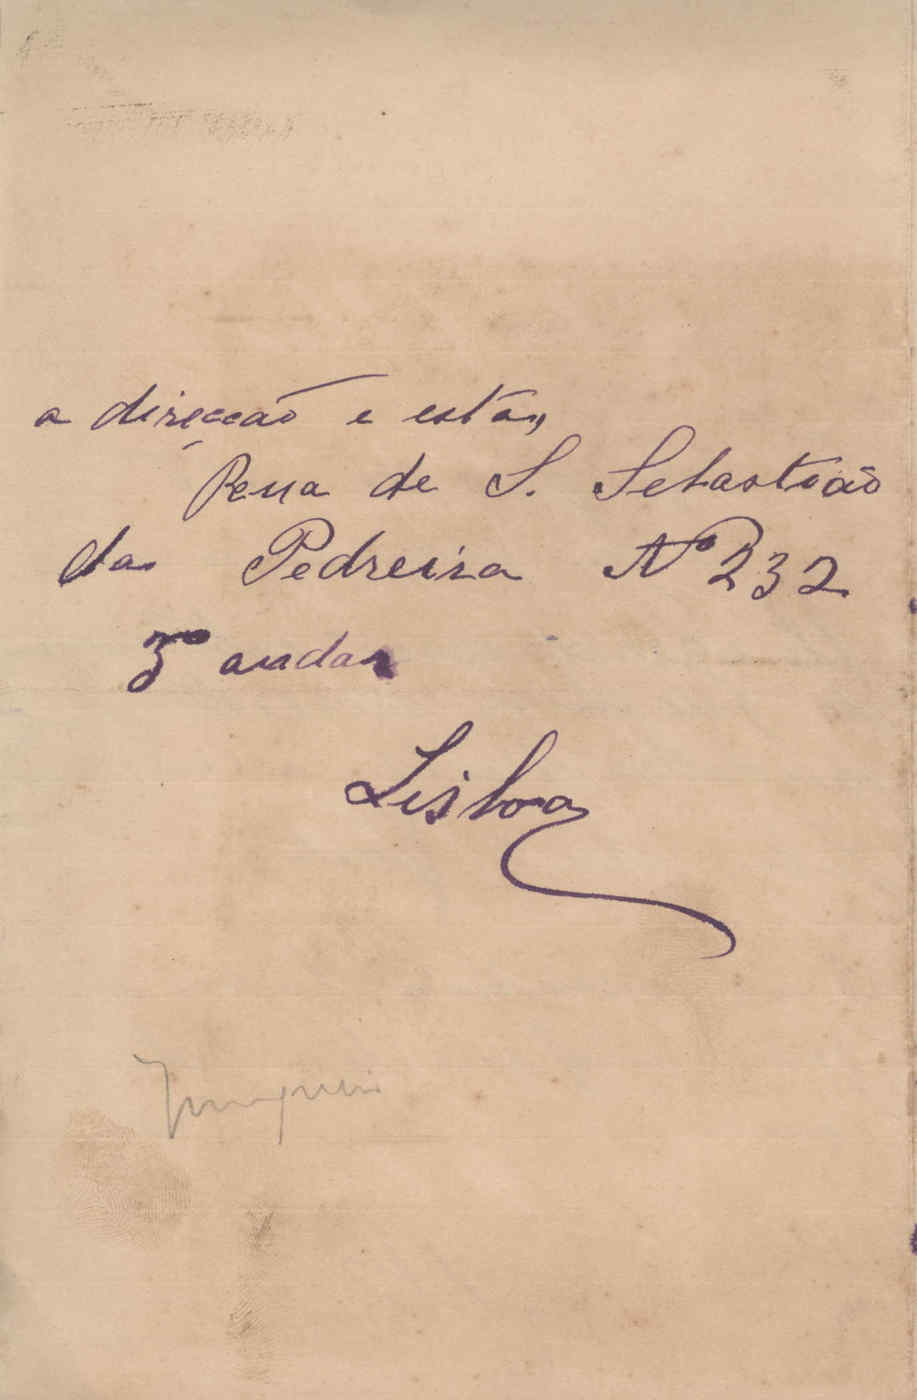 a direcção e está,,
Reua de S. Sebastião
da Pedreira Nº 232
3º andar
Lisboa
Junqueiro